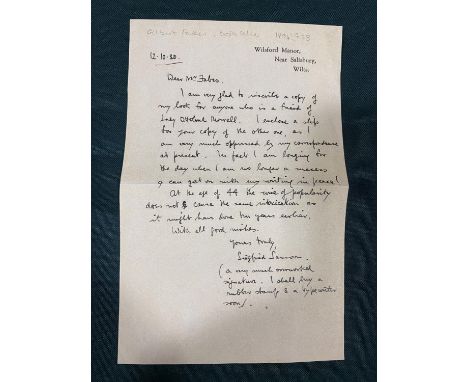 Gilbert Fabes
Wilsford Manor,
Near Salisbury,
Wilts.
12.10.30.
Dear Mr Fabes,
I am very glad to inscribe a copy of
my book for anyone who is a friend of
Lady Ottoline Morrell. I enclose a slip
for your copy of the other one, as I
am very much oppressed by my correspondence
at present. In fact I am longing for
the day when I am no longer a success
& can get on with my writing in peace!
At the age of 44 the wine of popularity
does not cause the same intoxication as
it might have done ten years earlier.
With all good wishes.
Yours truly,
Siegfried Sassoon
(a very much overworked
signature. I shall buy a
rubber stamp & a typewriter
soon).